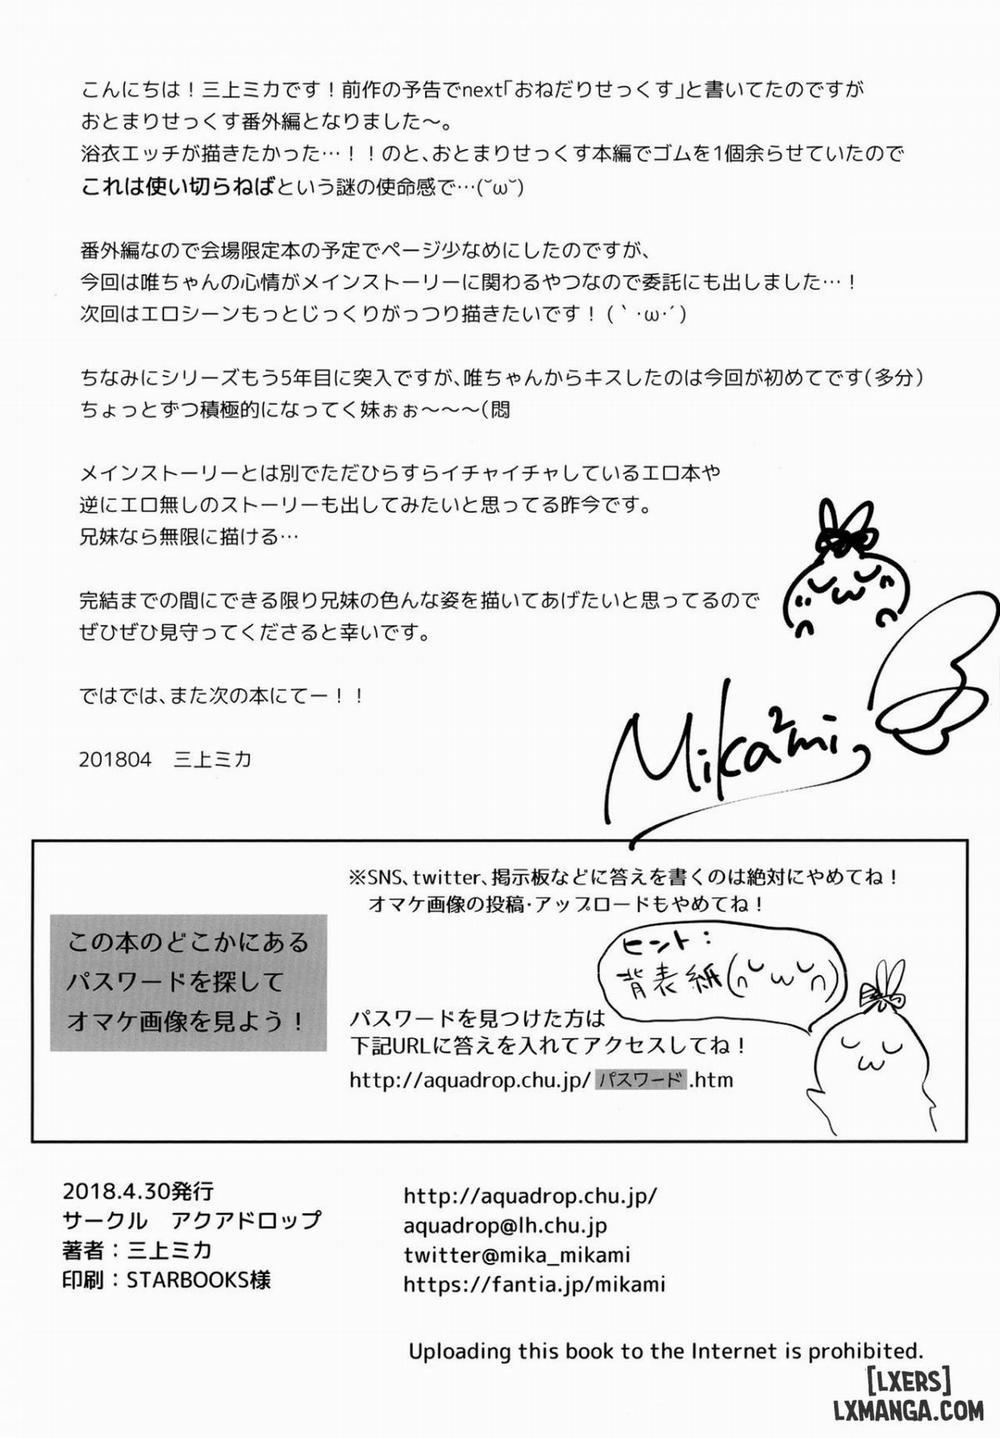 こんにちは！三上ミカです！前作の予告でnext「おねだりせっくす」と書いてたのですが
おとまりせっくす番外編となりました～。
浴衣エッチが描きたかった…！！のと、おとまりせっくす本編でゴムを1個余らせていたので
これは使い切らねばという謎の使命感で…(˘ω˘)
番外編なので会場限定本の予定でページ少なめにしたのですが、
今回は唯ちゃんの心情がメインストーリーに関わるやつなので委託にも出しました…！
次回はエロシーンもっとじっくりがっつり描きたいです！(｀･ω･´)
ちなみにシリーズもう5年目に突入ですが、唯ちゃんからキスしたのは今回が初めてです(多分)
ちょっとずつ積極的になってく妹ぉぉ～～～(悶
メインストーリーとは別でただひらすらイチャイチャしているエロ本や
逆にエロ無しのストーリーも出してみたいと思ってる昨今です。
兄妹なら無限に描ける…
完結までの間にできる限り兄妹の色んな姿を描いてあげたいと思ってるので
ぜひぜひ見守ってくださると幸いです。
ではでは、また次の本にてー！！
201804　三上ミカ
Mika2mi
※SNS、twitter、掲示板などに答えを書くのは絶対にやめてね！
オマケ画像の投稿・アップロードもやめてね！
この本のどこかにある
パスワードを探して
オマケ画像を見よう！
ヒント：
背表紙(˘ω˘)
パスワードを見つけた方は
下記URLに答えを入れてアクセスしてね！
http://aquadrop.chu.jp/ パスワード .htm
2018.4.30発行
サークル　アクアドロップ
著者：三上ミカ
印刷：STARBOOKS様
http://aquadrop.chu.jp/
aquadrop@lh.chu.jp
twitter@mika_mikami
https://fantia.jp/mikami
Uploading this book to the Internet is prohibited.
[LXERS]
LXMANGA.COM